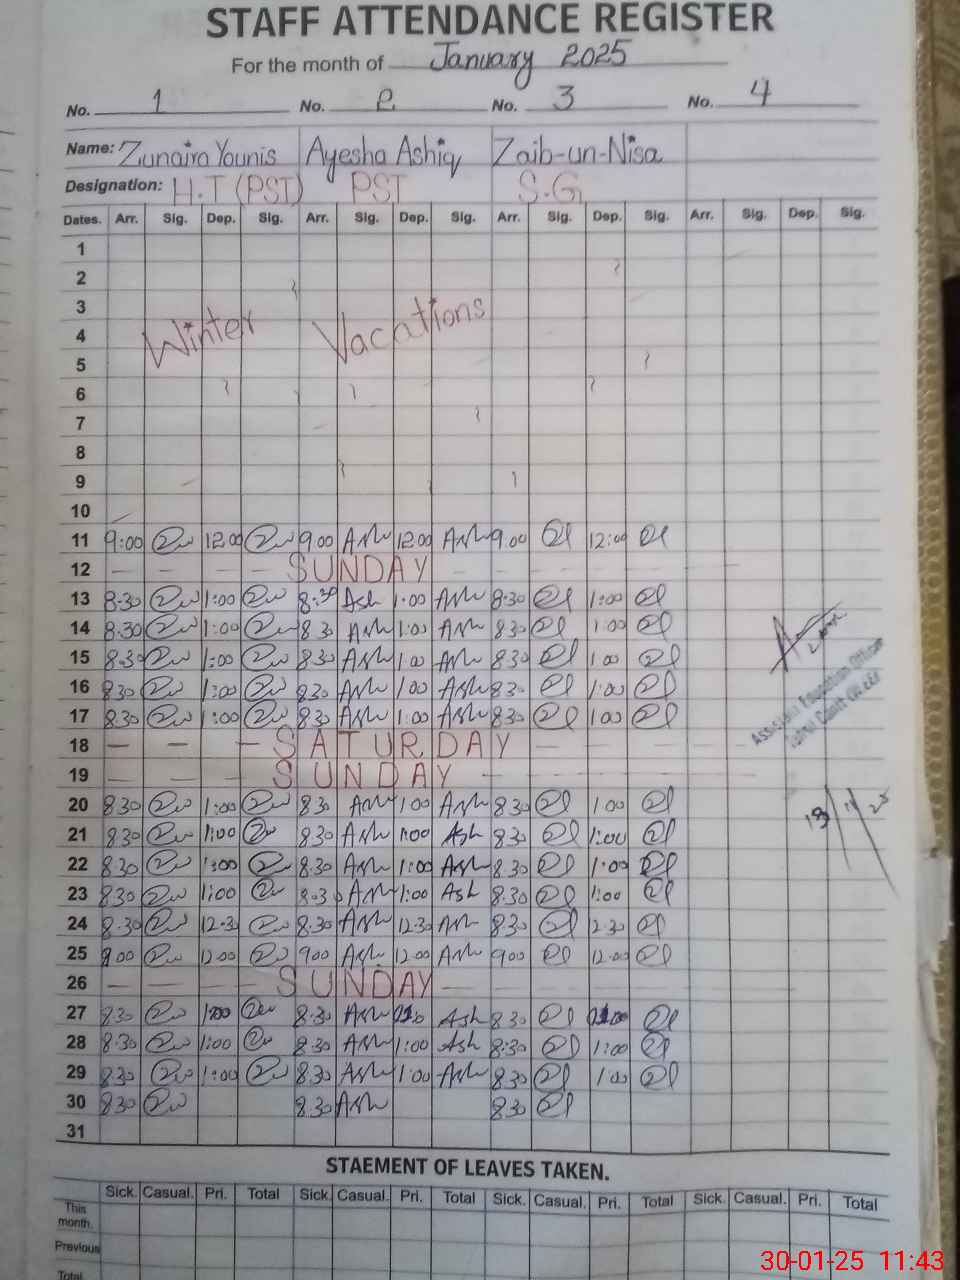 STAFF ATTENDANCE REGISTER
For the month of January 2025
No. 1 No. 2 No. 3 No. 4
Name: Zunaira Younis Ayesha Ashiq Zaib-un-Nisa
Designation: H.T (PST) PST S.G
Dates. Arr. Sig. Dep. Sig. Arr. Sig. Dep. Sig. Arr. Sig. Dep. Sig. Arr. Sig. Dep. Sig.
1
2
3
4
Winter Vacations
5
6
7
8
9
10
11 9:00 12:00 9:00 Ash 12:00 Ash 9:00 12:00
12 SUNDAY
13 8:30 1:00 8:30 Ash 1:00 Ash 8:30 1:00
14 8:30 1:00 8 30 Ash 1:00 Ash 8 30 1:00
15 8:30 1:00 8 30 Ash 1 00 Ash 8 30 1 00
16 8 30 1:00 8 30 Ash 1 00 Ash 8 30 1:00
17 8 30 1:00 8 30 Ash 1:00 Ash 8 30 1 00
18 SATURDAY
19 SUNDAY
20 8 30 1:00 8 30 Ash 1 00 Ash 8 30 1 00
21 8 30 1:00 8 30 Ash 1:00 Ash 8 30 1:00
22 8:30 1:00 8.30 Ash 1:00 Ash 8.30 1:00
23 8 30 1:00 8:30 Ash 1:00 Ash 8.30 1:00
24 8.30 12.30 8.30 Ash 12.30 Ash 8.30 12.30
25 9 00 12 00 9 00 Ash 12 00 Ash 9 00 12 00
26 SUNDAY
27 8 30 1:00 8.30 Ash Ash 8 30
28 8.30 1:00 8.30 Ash 1:00 Ash 8:30 1:00
29 8 30 1:00 8.30 Ash 1:00 Ash 8 30 1:00
30 8 30 8.30 Ash 8 30
31
Assistant Education Officer
STAEMENT OF LEAVES TAKEN.
Sick. Casual. Pri. Total Sick. Casual. Pri. Total Sick. Casual. Pri. Total Sick. Casual. Pri. Total
This
month.
Previous
Total
30-01-25 11:43